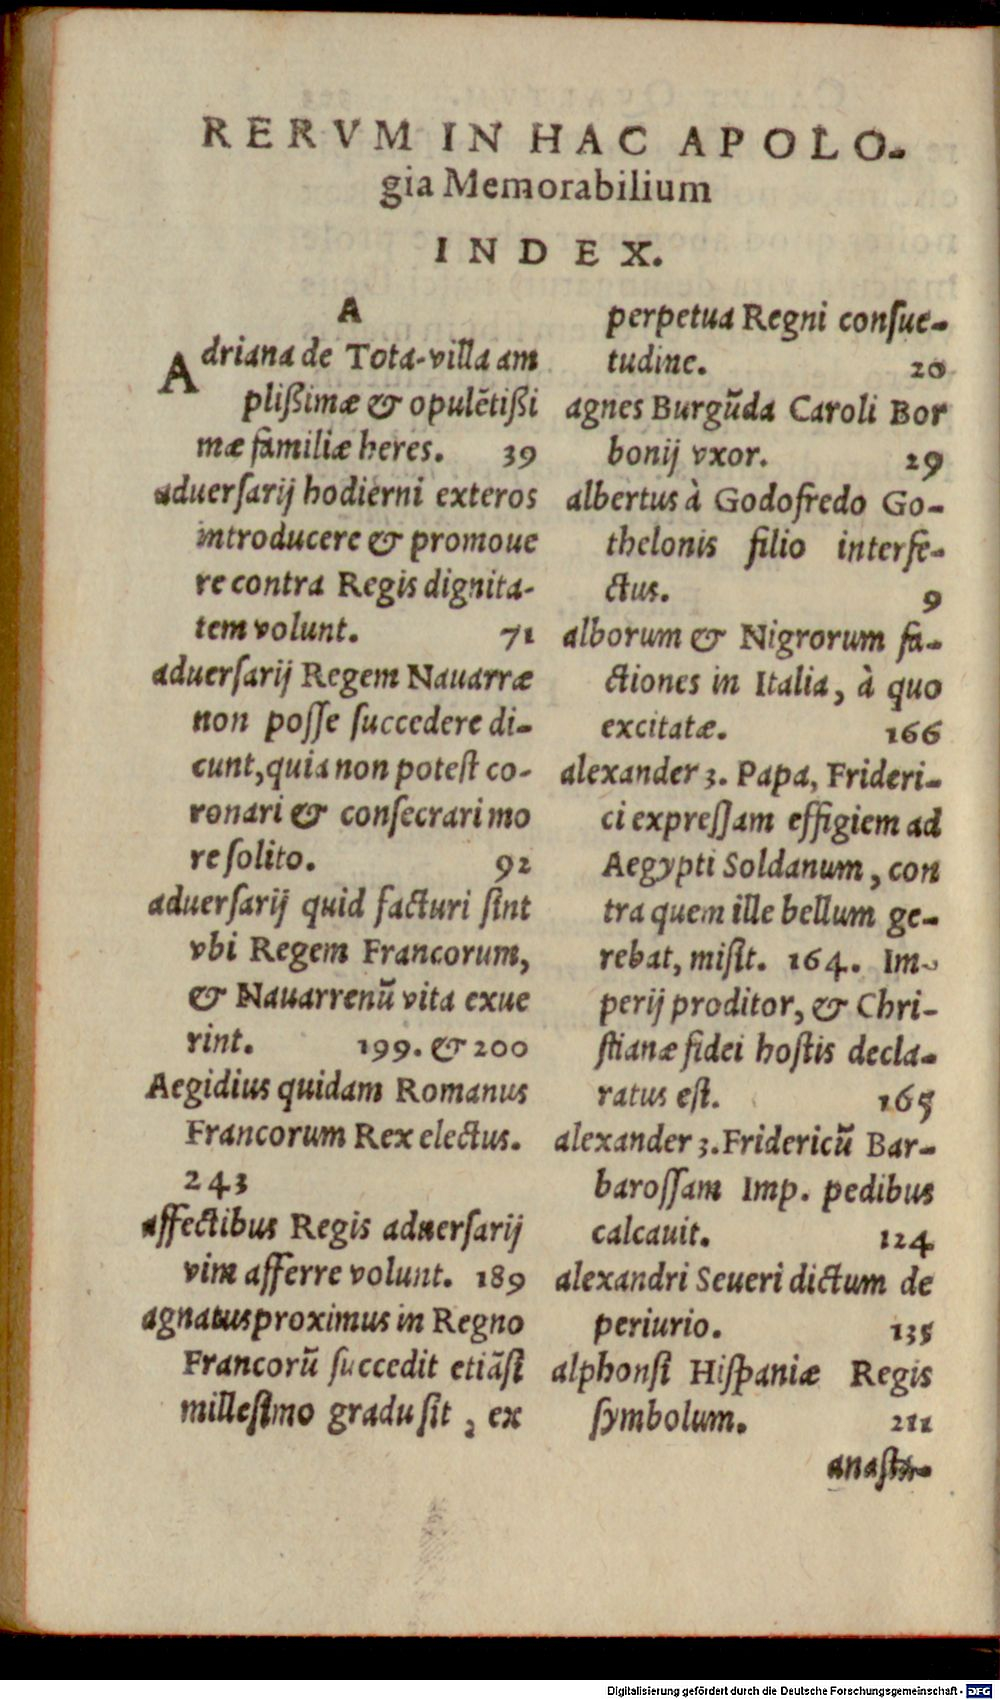 RERVM IN HAC APOLO-
gia Memorabilium
INDEX.
A
Adriana de Tota-villa am
plißimæ & opulētißi
mæ familiæ heres. 39
aduerſarij hodierni exteros
introducere & promoue
re contra Regis dignita-
tem volunt. 71
aduerſarij Regem Nauarræ
non poſſe ſuccedere di-
cunt, quia non poteſt co-
ronari & conſecrari mo
re ſolito. 92
aduerſarij quid facturi ſint
vbi Regem Francorum,
& Nauarrenū vita exue
rint. 199. & 200
Aegidius quidam Romanus
Francorum Rex electus.
243
affectibus Regis aduerſarij
vim afferre volunt. 189
agnatus proximus in Regno
Francorū ſuccedit etiāſi
milleſimo gradu ſit, ex
perpetua Regni conſue-
tudine. 20
agnes Burgūda Caroli Bor
bonij vxor. 29
albertus à Godofredo Go-
thelonis filio interfe-
ctus. 9
alborum & Nigrorum fa-
ctiones in Italia, à quo
excitatæ. 166
alexander 3. Papa, Frideri-
ci expreſſam effigiem ad
Aegypti Soldanum, con
tra quem ille bellum ge-
rebat, miſit. 164. Im-
perij proditor, & Chri-
ſtianæ fidei hoſtis decla-
ratus eſt. 165
alexander 3. Fridericū Bar-
baroſſam Imp. pedibus
calcauit. 124
alexandri Seueri dictum de
periurio. 135
alphonſi Hiſpaniæ Regis
ſymbolum. 211
anaſta-
Digitalisierung gefördert durch die Deutsche Forschungsgemeinschaft - DFG